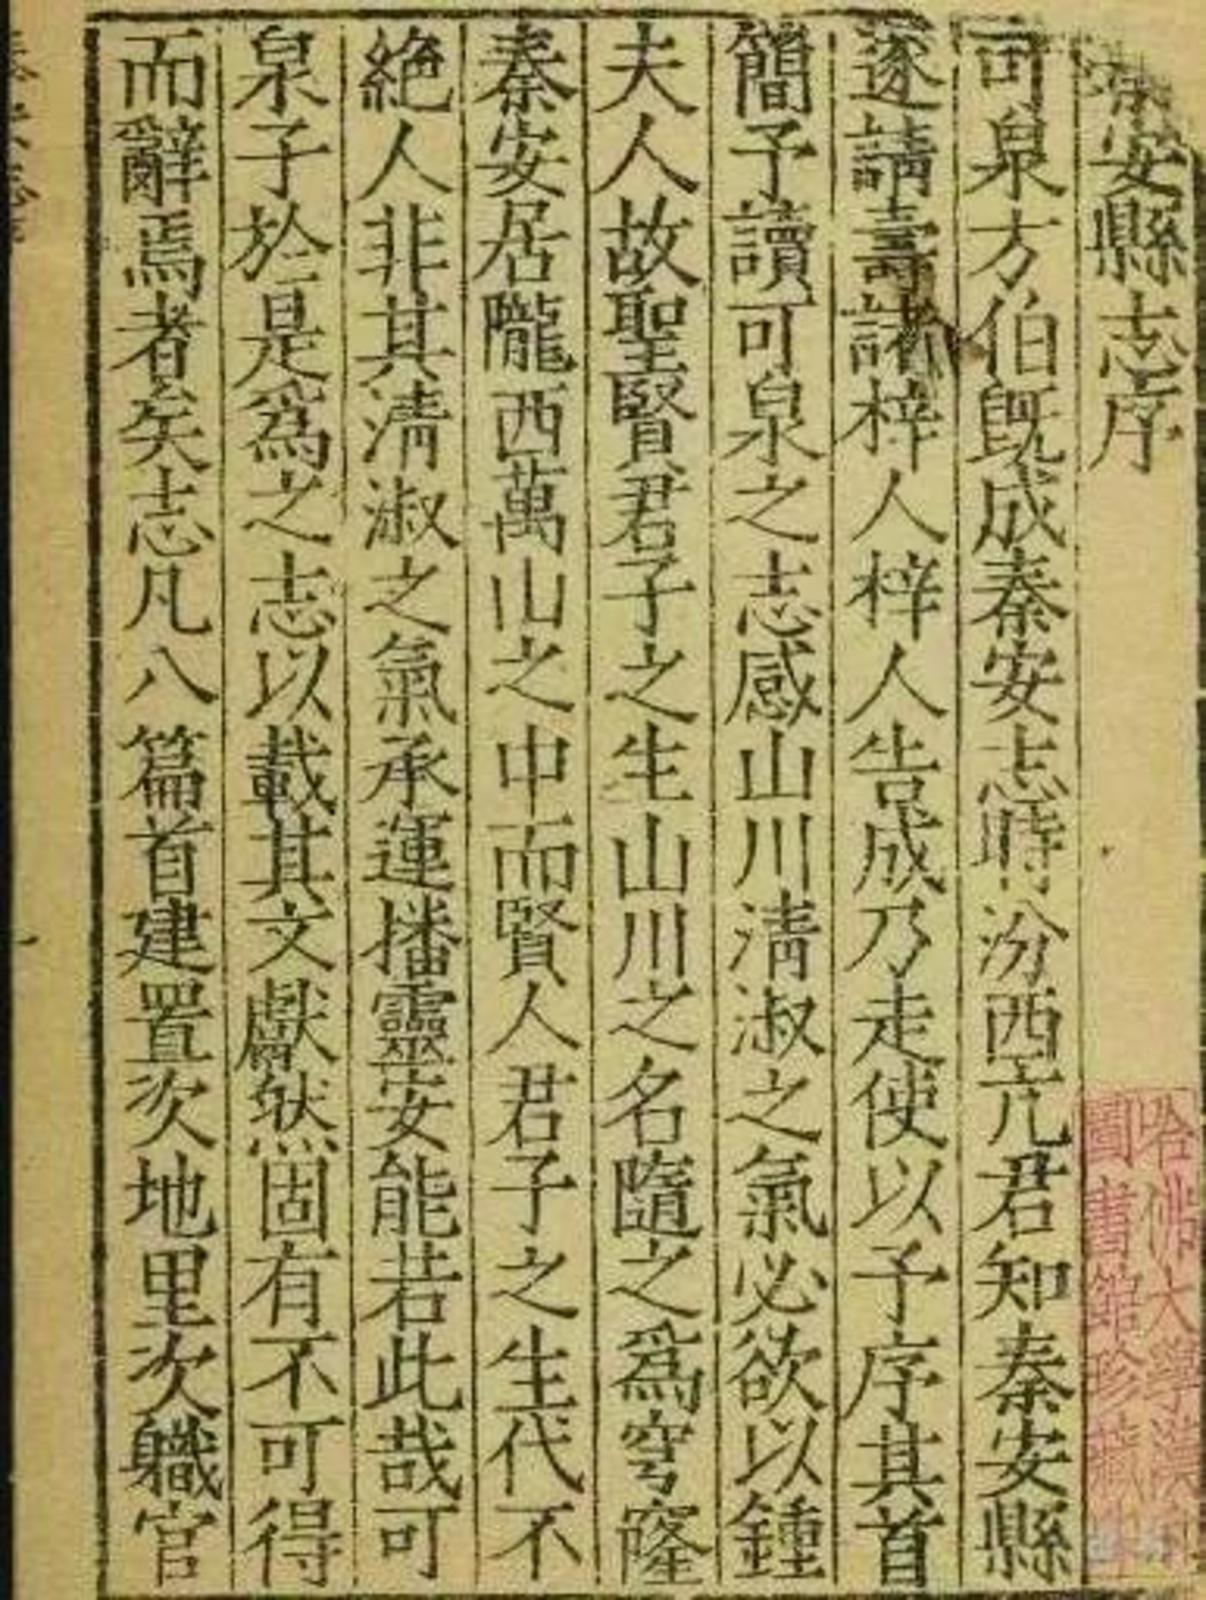 秦安縣志序
可泉方伯旣成秦安志時汾西亢君知秦安縣
遂請壽諸梓人梓人告成乃走使以予序其首
簡予讀可泉之志感山川淸淑之氣必欲以鍾
夫人故聖賢君子之生山川之名隨之爲穹窿
秦安居隴西萬山之中而賢人君子之生代不
絶人非其淸淑之氣承運播靈安能若此哉可
泉子於是爲之志以載其文獻然固有不可得
而辭焉者矣志凡八篇首建置次地里次職官
哈佛大學漢和
圖書館珍藏印